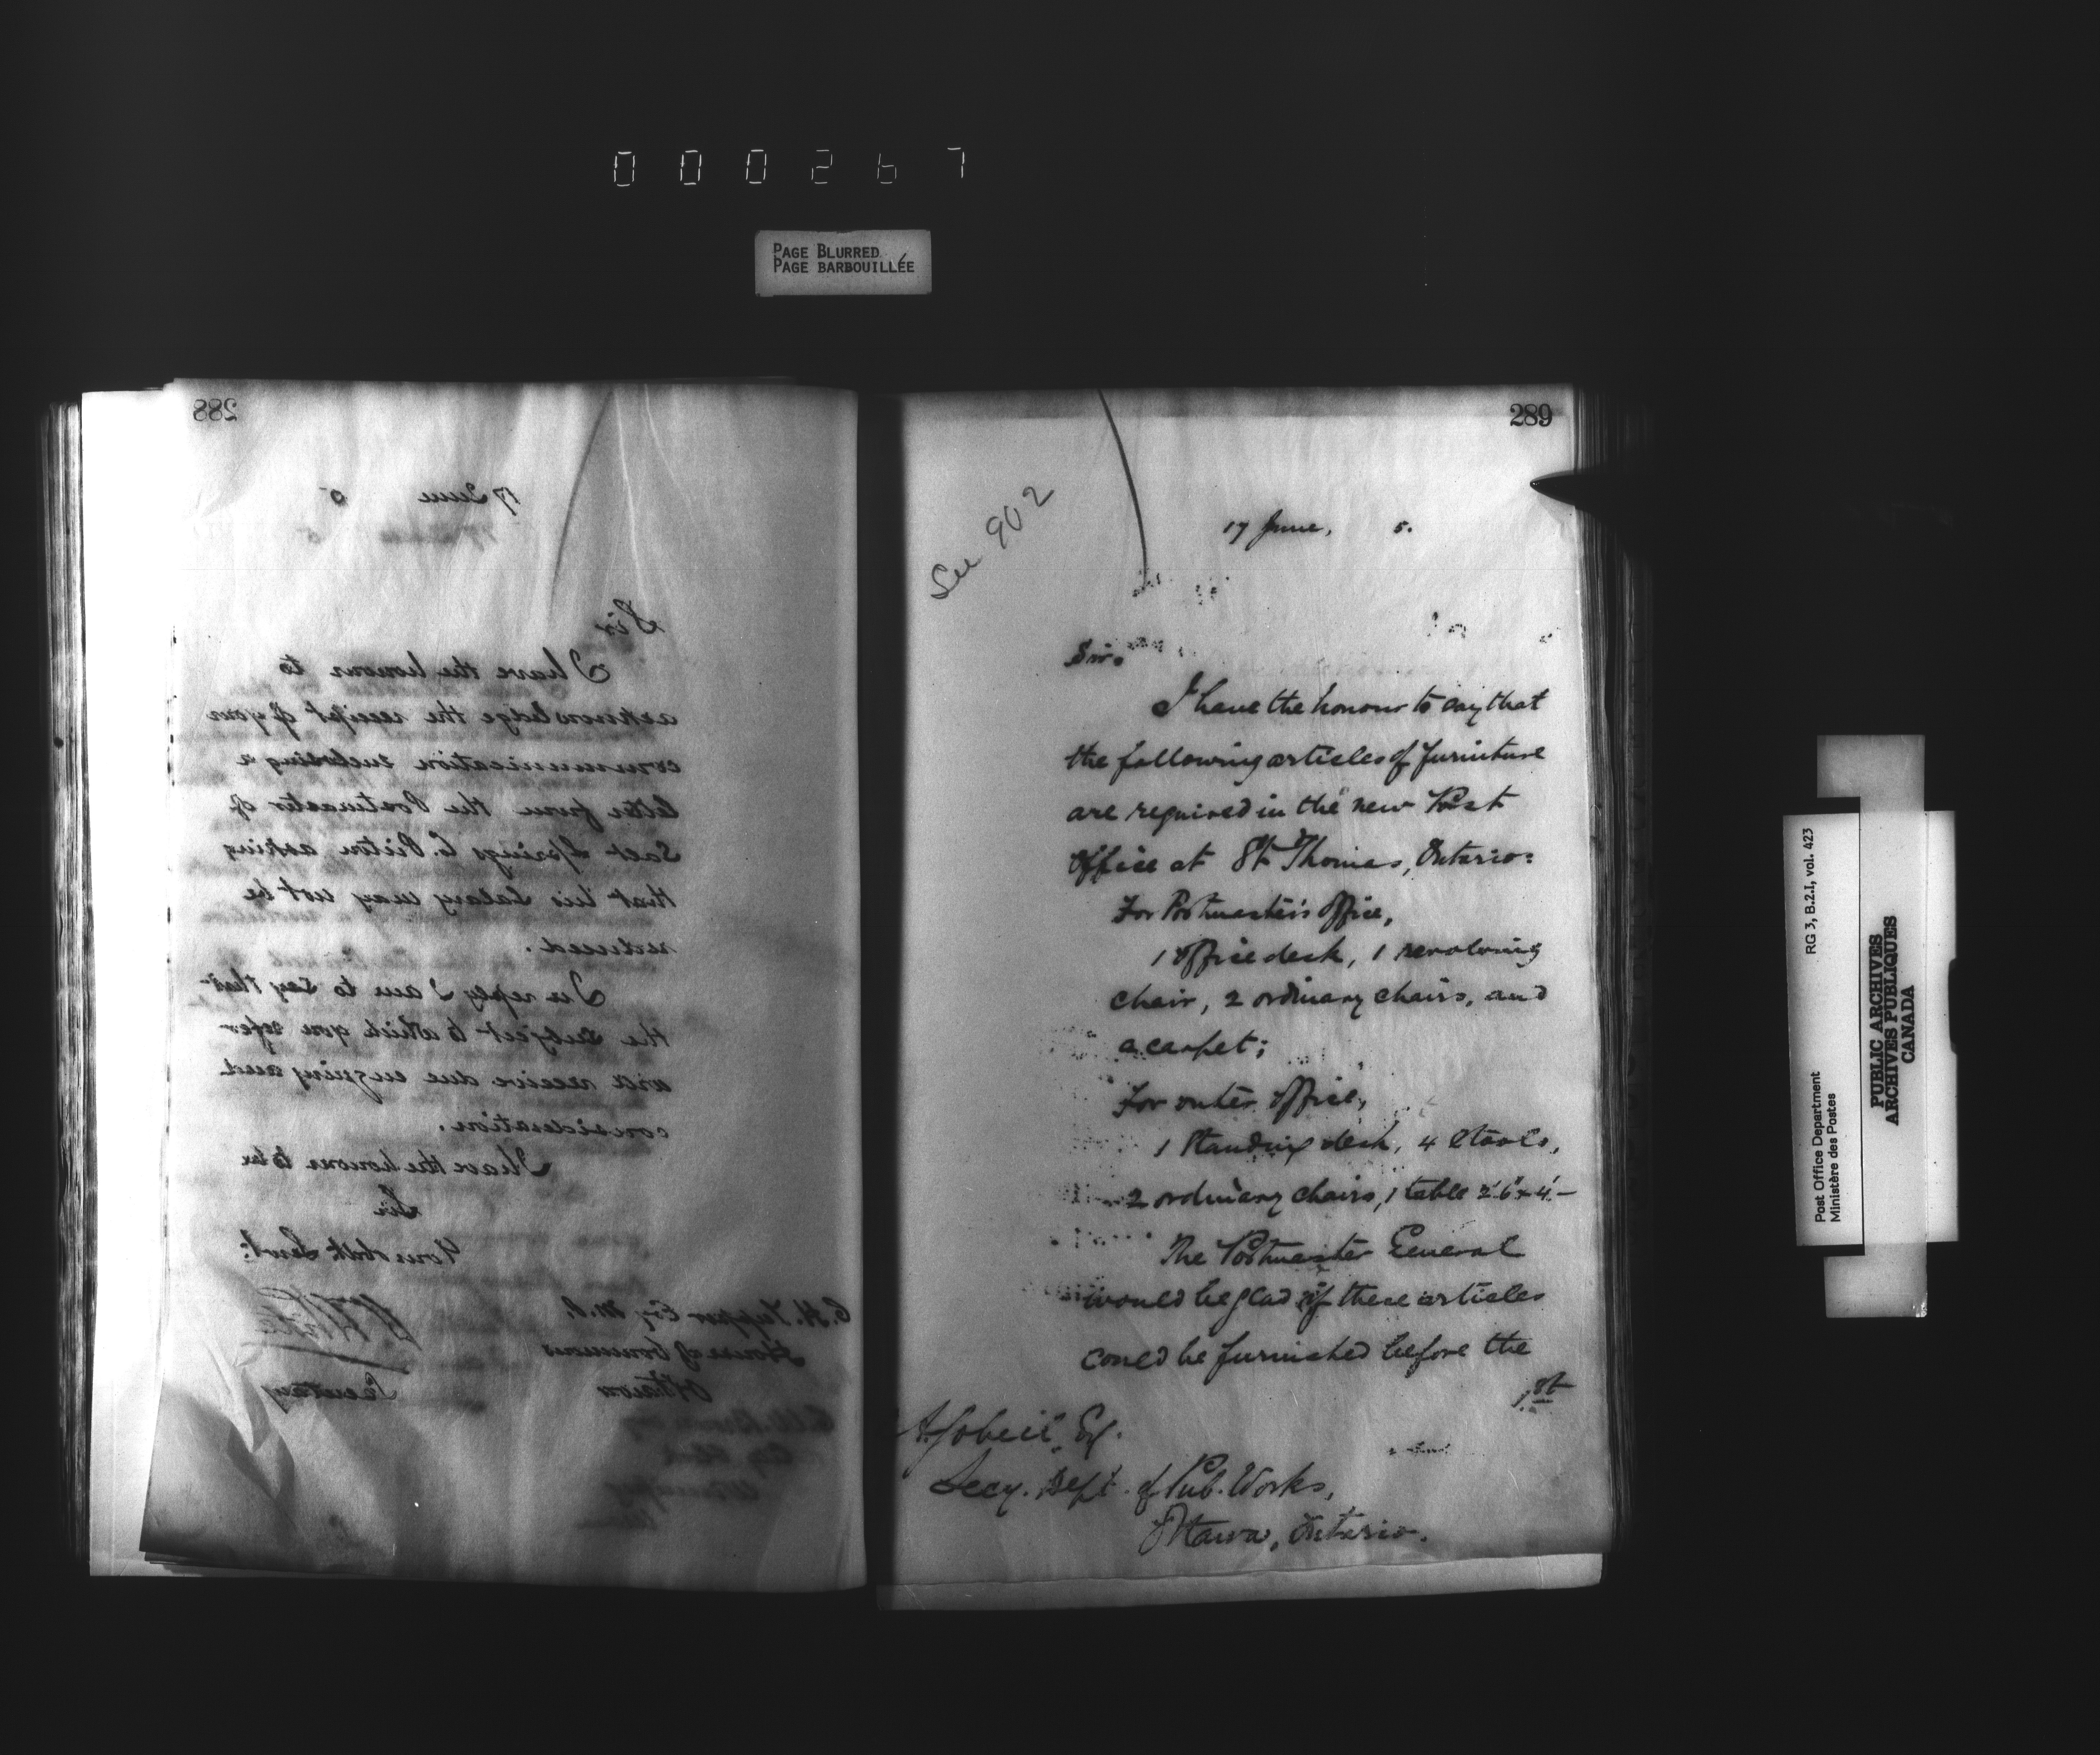 000267
PAGE BLURRED
PAGE BARBOUILLÉE
288
17 June 5
Sir
I have the honour to
acknowledge the receipt of your
communication enclosing a
letter from the Postmaster of
Salt Springs C. Pictou asking
that his Salary may not be
reduced.
In reply I am to say that
the subject to which you refer
will receive due enquiry and
consideration.
I have the honour to be
Sir
Your obdt Servt:
C. H. Tupper Esq M.P.
House of Commons
Ottawa
Secretary
289
See 902
17 June, 5.
Sir.
I have the honour to say that
the following articles of furniture
are required in the new Post
Office at St Thomas, Ontario:
For Postmaster's Office,
1 office desk, 1 revolving
chair, 2 ordinary chairs, and
a carpet;
For outer office,
1 Standing desk, 4 stools,
2 ordinary chairs, 1 table 2'6" x 4'—
The Postmaster General
would be glad if these articles
could be furnished before the
1st
A. Gobeil, Esq.
Secy. Dept. of Pub. Works,
Ottawa, Ontario.
RG 3, B.2.I, vol. 423
Post Office Department
Ministère des Postes
PUBLIC ARCHIVES
ARCHIVES PUBLIQUES
CANADA